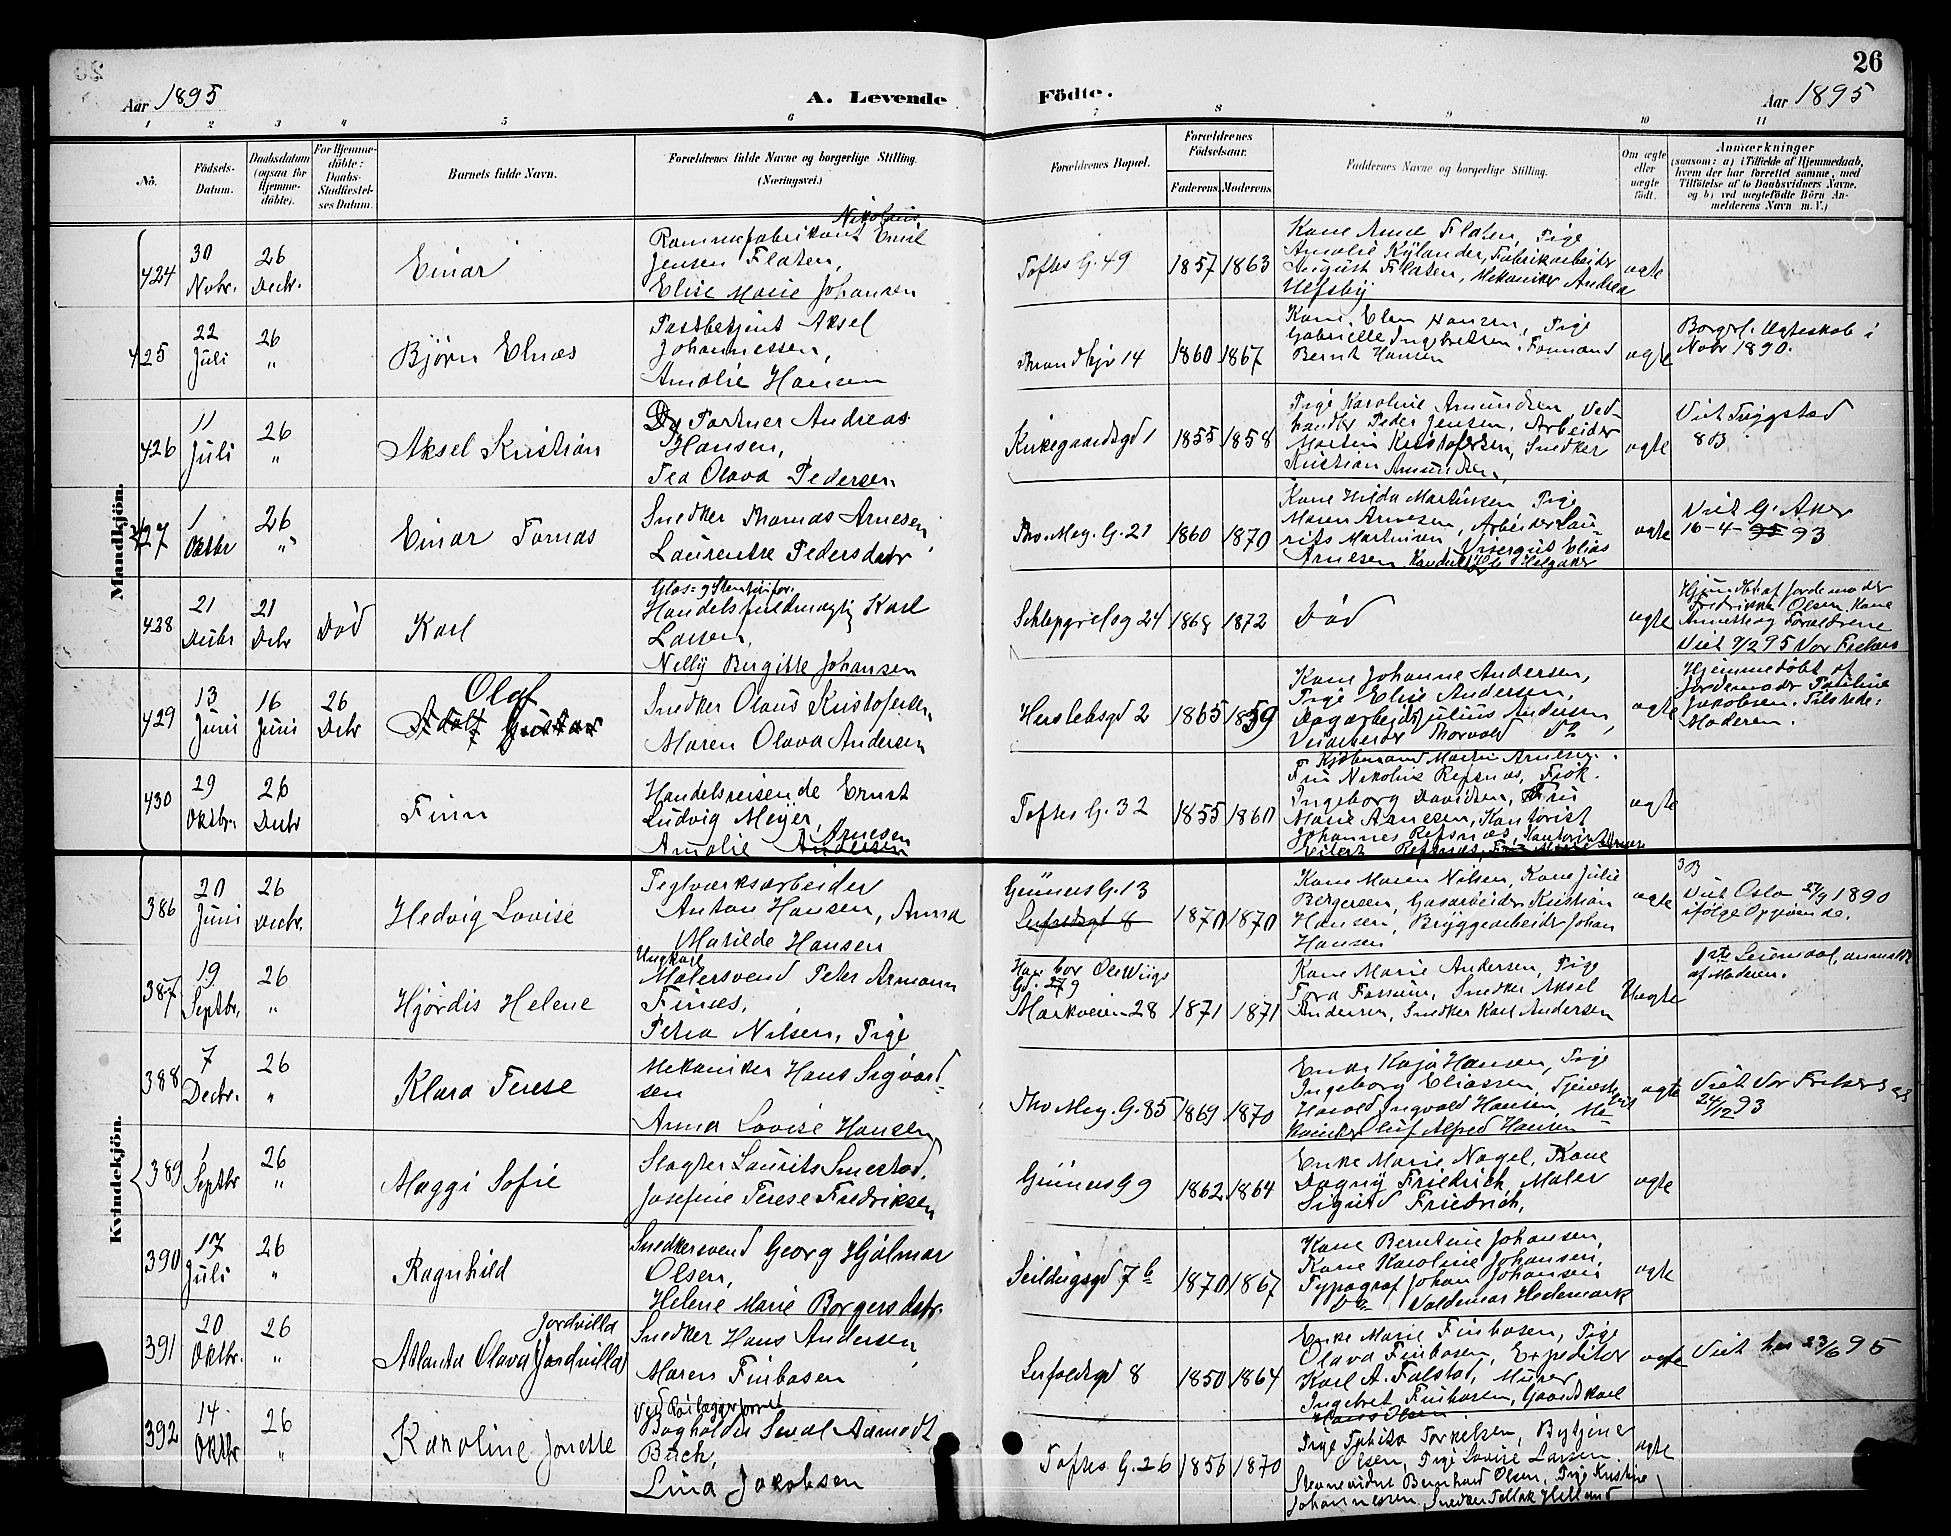 26
Aar 1895
A. Levende Födte.
Aar 1895
1 2 3 4 5 6 7 8 9 10 11
No.
Födsels-
Datum.
Daabsdatum
(ogsaa for
Hjemme-
döbte).
For Hjemme-
döbte:
Daabs-
Stadfæstel-
ses Datum.
Barnets fulde Navn.
Forældrenes fulde Navne og borgerlige Stilling.
(Næringsvei.)
Forældrenes Bopæl.
Forældrenes
Födselsaar.
Faderens. Moderens.
Faddernes Navne og borgerlige Stilling.
Om ægte
eller
uægte
født.
Anmærkninger
(saasom: a) i Tilfælde af Hjemmedaab,
hvem der har forrettet samme, med
Tilføielse af to Daabsvidners Navne,
og b) ved uægtefödte Börn An-
melderens Navn m. V.)
Mandkjön.
424
30
Novbr.
26
Decbr.
Einar
Nikolaus
Rammefabrikant Emil
Jensen Flaten,
Elise Marie Johansen
Toftes G. 49
1857 1863
Kone Anne Flaten, Pige
Amalie Kylander, Fabrikarbeider
August Flaten, Mekaniker Andrea
Ulfsby
ægte
425
22
Juli
26
"
Bjørn Elnæs
Postbetjent Aksel
Johannessen,
Amalie Hansen
14
1860 1867
Kone Elen Hansen, Pige
Gabrielle Ingebretsen, Formand
Bernt Hansen
ægte
Borgerl. Ægteskab i
Novbr 1890.
426
11
Juli
26
"
Aksel Kristian
Portner Andreas
Hansen,
Tea Olava Pedersen
Kirkegaardsgd 1
1855 1858
Pige Karoline Amundsen, Ved-
handler Peder Jensen, Arbeider
Martin Kristofersen, Snedker
Kristian Amundsen,
ægte
Viet Trygstad
83
427
1
Oktbr
26
"
Einar Tomas
Snedker Thomas Arnesen,
Laurentze Pedersdatr
Thv. Mey. G. 21
1860 1870
Kone Hilda Martinsen, Pige
Maren Arnesen, Arbeider Lau-
rits Martinsen, Visergut Elias
Arnesen
ægte
Viet G. Aker
16-4-95 93
428
21
Decbr
21
Decbr
Død
Karl
Glas- og Stentøifor.
Handelsfuldmægtig Karl
Larsen,
Nelly Birgitte Johansen
Schleppegrelsg 24
1868 1872
Død
ægte
Hjemdbt af Jordemoder
Fredrikke Olsen, Kone
Annette og Forældrene
Viet 9/2 95 Vor Frelsers
429
13
Juni
16
Juni
26
Decbr
Olaf
Adolf Gustav
Snedker Olaus Kristofersen,
Maren Olava Andersen
Herslebsgd 2
1865 1859
Kone Johanne Andersen,
Pige Elise Andersen,
Dagarbeider Julius Andersen,
Veiarbeider Thorvald Do
ægte
Hjemmedøbt af
Jordemoder Pauline
Jakobsen. Tilstede:
Moderen.
430
29
Oktbr.
26
Decbr
Finn
Handelsreisende Ernst
Ludvig Meyer,
Arnesen
Amalie Andersen
Toftes G. 32
1855 1860
Kjøbmand Martin Arnesen.
Fru Nikoline Refsnæs, Frøk.
Ingeborg Davidsen, Fru
Marie Arnesen, Kontorist
Johannes Refsnæs, Kontorist
Refsnæs,
ægte
Kvindekjön.
386
20
Juni
26
Decbr.
Hedvig Lovise
Teglværksarbeider
Anton Hansen, Anna
Matilde Hansen
Grüners G. 13
8
1870 1870
Kone Maren Nilsen, Kone Julie
Bergersen, Gasarbeider Kristian
Hansen, Bryggearbeider Johan
Hansen
ægte
3B
Viet Oslo 27/9 1890
ifølge Opgivende.
387
19
Septbr.
26
"
Hjørdis Helene
Ungkarl
Malersvend Peter Armann
Finæs,
Petra Nilsen, Pige
Han bor Ole Wiigs
Gd. 9
Markveien 28
1871 1871
Kone Marie Andersen, Pige
Tora Fossum, Snedker Aksel
Andersen, Snedker Karl Andersen
Uægte
1ste Leiermaal, anmeldt
af Moderen.
388
7
Decbr.
26
"
Klara Terese
Mekaniker Hans Sigvard-
sen
Anna Lovise Hansen
Thv. Mey. G. 85
1869 1870
Enke Kaja Hansen, Pige
Ingeborg Eliassen, Tjeneste
Harald Ingvald Hansen, Me-
kaniker Oluf Alfred Hansen
ægte
Viet Vor Frelsers
24/12 93
389
1
Septbr
26
"
Maggi Sofie
Slagter Laurits Smestad,
Josefine Terese Fredriksen
Grüners G 9
1862 1864
Enke Marie Nagel, Kone
Dagny Friedrich, Maler
Sigurd Friedrich,
ægte
390
17
Juli
26
"
Ragnhild
Snedkersvend Georg Hjalmar
Olsen,
Helene Marie Borgersdatr.
Seildugsgd 7b
1870 1867
Kone Berntine Johansen,
Kone Karoline Johansen,
Typograf Johan Johansen
Do Valdemar Hedemark
ægte
391
20
Oktbr.
26
"
Jordvilla
Atlanta Olava (Jordvilla)
Snedker Hans Andersen,
Maren Finbosen
8
1850 1864
Enke Marie Finbosen, Pige
Olava Finbosen, Expeditør
Karl A. Falstad, Murer
Ingebret Finbosen, Gaardskarl
Hans Olsen
ægte
Viet her 23/6 95
392
14
Oktbr
26
"
Karoline Jonette
Bogholder Sival Aamodt
Bach,
Lina Jakobsen
Toftes G. 26
1856 1870
Pige Tabita Torkelsen, Bytjener
Olsen, Pige Lovise Larsen.
Bernhard Olsen, Pige Kristine
Johannessen, Snedker Tellak Helland
ægte